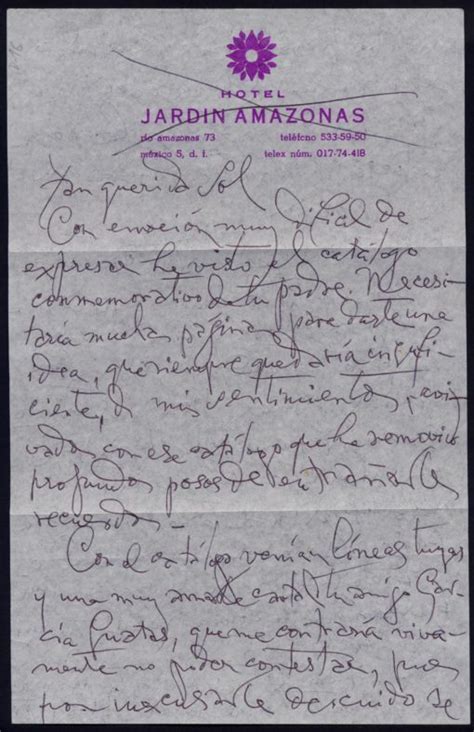 HOTEL
JARDIN AMAZONAS
río amazonas 73 teléfono 533-59-50
méxico 5, d. f. telex núm. 017-74-418
Tan querida Sol
Con emoción muy difícil de
expresar he visto el catálogo
conmemorativo de tu padre. Necesi-
taría muchas páginas para darte una
idea, que siempre quedaría insufi-
ciente, de mis sentimientos, avi-
vados con ese catálogo que ha removido
profundos posos de entrañable
recuerdo-
Con el catálogo venían líneas tuyas
y una muy amable carta tu amigo Gar-
cía Guatas, que me contraría viva-
mente no poder contestar, pues
por inexcusable descuido se